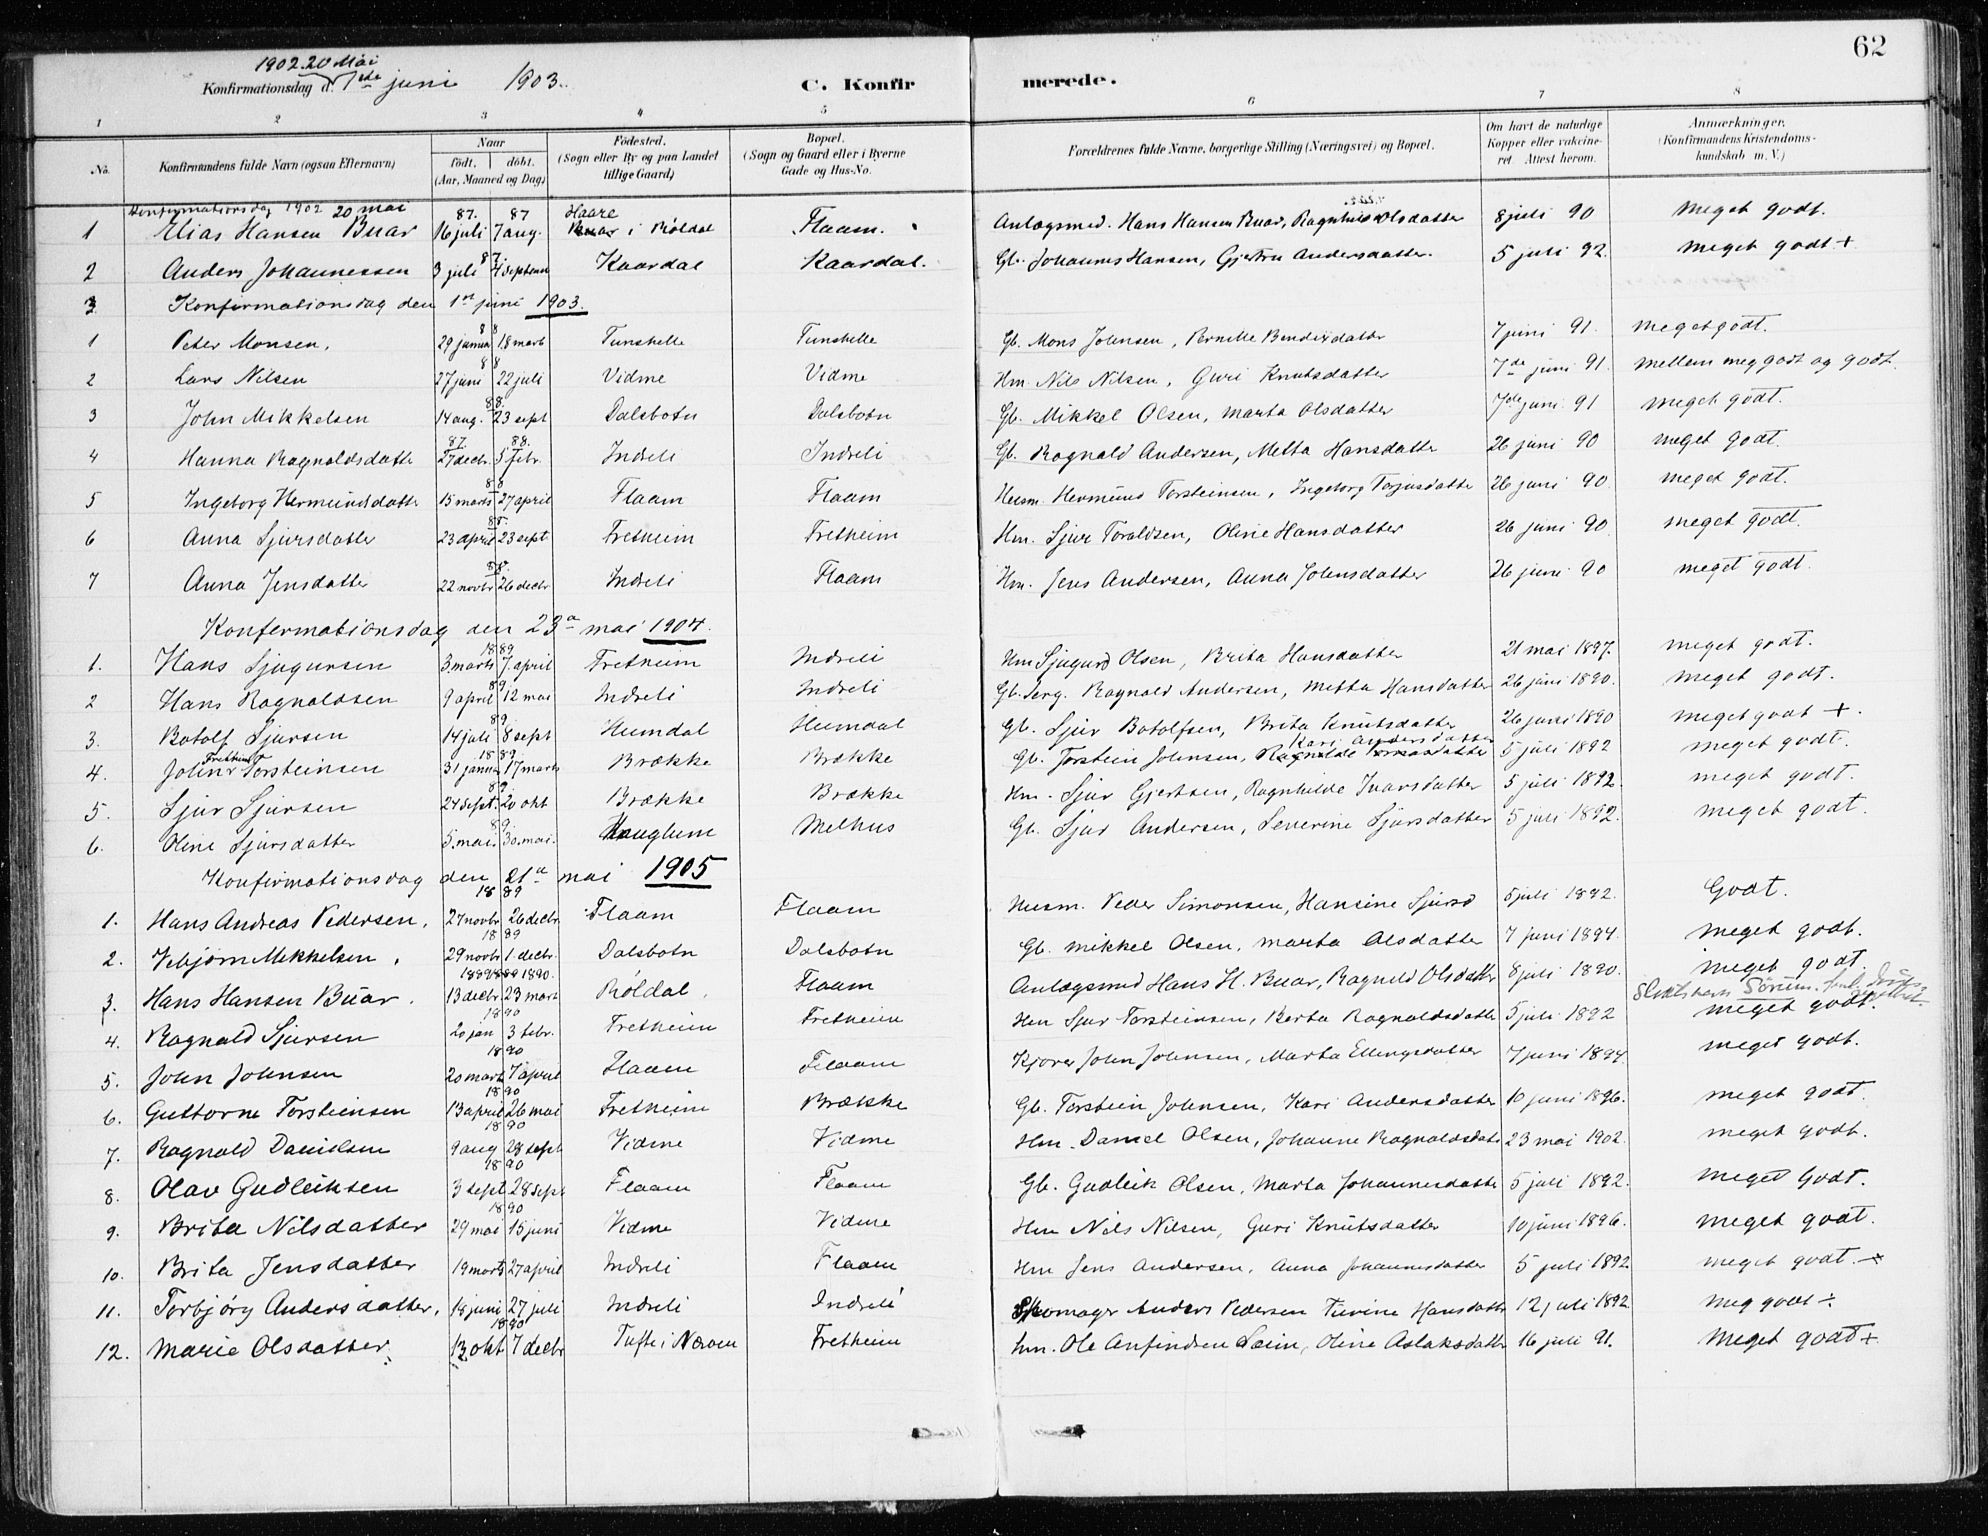 62
1902. 20 Mai
Konfirmationsdag d. 1ste juni 1903.
C. Konfirmerede.
1 2 3 4 5 6 7 8
No. Konfirmandens fulde Navn (ogsaa Efternavn) Naar født. døbt. (Aar, Maaned og Dag) Fødested. (Sogn eller By og paa Landet tillige Gaard) Bopæl. (Sogn og Gaard eller i Byerne Gade og Hus-No. Forældrenes fulde Navne, borgerlige Stilling (Næringsvei) og Bopæl. Om havt de naturlige Kopper eller vakcineret. Attest herom. Anmærkninger. (Konfirmandens Kristendomskundskab m. V.)
Konfirmationsdag 1902 20 mai
1 Elias Hansen Buar 87. 16 juli 87 7 aug. Haare i Røldal Flaam. Anlægsmed. Hans Hansen Buar, Ragnhild Olsdatter 8 juli 90 meget godt.
2 Anders Johannessen 87 3 juli 4 septemb Kaardal Kaardal. Gb. Johannes Hansen, Gjertru Andersdatter. 5 juli 92. meget godt +
3 Konfirmationsdag den 1ste juni 1903.
1 Peter Monsen, 88 29 januar 18 mart Tunshelle Tunshelle Gb. Mons Johnsen, Pernille Bendixdatter 7 juni 91. meget godt.
2 Lars Nilsen 88 27 juni 22 juli Vidme Vidme Hm. Nils Nilsen, Guri Knutsdatter 7de juni 91. mellem meg godt og godt.
3 John Mikkelsen 88. 14 aug. 23 sept Dalsbotn Dalsbotn Gb. Mikkel Olsen, Marta Olsdatter 7de juni 91 meget godt.
4 Hanna Ragnaldsdatte 87. 27 decbr. 88. 5 febr. Indreli Indreli Gb. Ragnald Andersen, Metta Hansdatter 26 juni 90 meget godt.
5 Ingeborg Hermundsdatte 88 15 marts 27 april Flaam Flaam Husm. Hermund Torsteinsen, Ingeborg Torjusdatte 26 juni 90 meget godt.
6 Anna Sjursdatter 88. 23 april 23 sept Fretheim Fretheim Hm. Sjur Toraldsen, Oline Hansdatter 26 juni 90 meget godt.
7 Anna Jensdatter 88. 22 novbr 26 decbr Indreli Flaam Hm. Jens Andersen, Anna Johnsdatter 26 juni 90 meget godt.
Konfermationsdag den 23 mai 1904.
1. Hans Sjugursen 1889 3. marts 7. april Fretheim Indreli Hm Sjugurd Olsen, Brita Hansdatter 21 mai 1897. meget godt.
2 Hans Ragnaldsen 89 9 april 12 mai Indreli Indreli Gb. Serg. Ragnald Andersen, Metta Hansdatter 26 juni 1890. meget godt.
3. Botolf Sjursen 89. 14 juli 8 sept Heimdal Heimdal Gb. Sjur Botolfsen, Brita Knutsdatter 26 juni 1890 meget godt +.
4. John Fretheim Torsteinsen 1889. 31 januar 17 marts Brække Brække Gb. Torstein Johnsen, Kari Andersdatter 5 juli 1892 meget godt.
5. Sjur Sjursen 89 24 sept. 20 okt Brække Brække Hm. Sjur Gjertsen, Ragnhilde Ivarsdatter 5 juli 1892. meget godt.
6. Oline Sjursdatter 89. 5. mai 30. mai. Hauglum Melhus Gb. Sjur Andersen, Severine Sjursdatter 5 juli 1892. meget godt.
Konfirmationsdag den 21 mai 1905
1. Hans Andreas Pedersen. 1889 27 novbr 26 decbr. Flaam Flaam Husm. Peder Simonsen, Hansine Sjursd 5 juli 1892. Godt.
2. Vebjørn Mikkelsen. 1889 29 novbr 1 decbr. Dalsbotn Dalsbotn Gb. Mikkel Olsen, Marta Olsdatter 7 juni 1894. meget godt.
3. Hans Hansen Buar. 1889 1890. 13 decbr 23 mart Røldal. Flaam Anlægsmed Hans H. Buar, Ragnild Olsdattr 8 juli 1890. meget godt.
4. Ragnald Sjursen 1890 20 jan 3 febr. Fretheim Fretheim Hm Sjur Torsteinsen, Berta Ragnaldsdatte 5 juli 1892 meget godt.
5. John Johnsen 1890 20 mart 7 april Flaam Flaam Kjører John Johnsen, Marta Ellingsdatter 7 juni 1894. meget godt.
6. Guttorne Torsteinsen 1890 13 april 26 mai Fretheim Brække Gb. Torstein Johnsen, Kari Andersdatter 10 juni 1896. meget godt.
7. Ragnald Danielsen 1890 9 aug 28 sept Vidme Vidme Hm. Daniel Olsen, Johanne Ragnaldsdatt 23 mai 1902. meget godt.
8. Olav Gudleiksen 1890 3 sept 28 sept Flaam Flaam Gb. Gudleik Olsen, Marta Johannesdatte 5 juli 1892. meget godt.
9. Brita Nilsdatter 1890 29 mai 15 juni Vidme Vidme Hm Nils Nilsen, Guri Knutsdatter 10 juni 1896. meget godt.
10. Brita Jensdatter 19 mart 27 april Indreli Flaam Hm Jens Andersen, Anna Johannesdatter 5 juli 1892. meget godt.
11. Torbjørg Andersdatter. 18 juni 27 juli Indreli Indreli Skomager Anders Pedersen Turine Hansdatte 12 juli 1892. meg godt ÷
12. Marie Olsdatter 1890 13 okt 7 decbr Tufte i Næroen Fretheim hm. Ole Anfindsen Leim, Oline Aslaksdatter 16 juli 91. Meget godt +